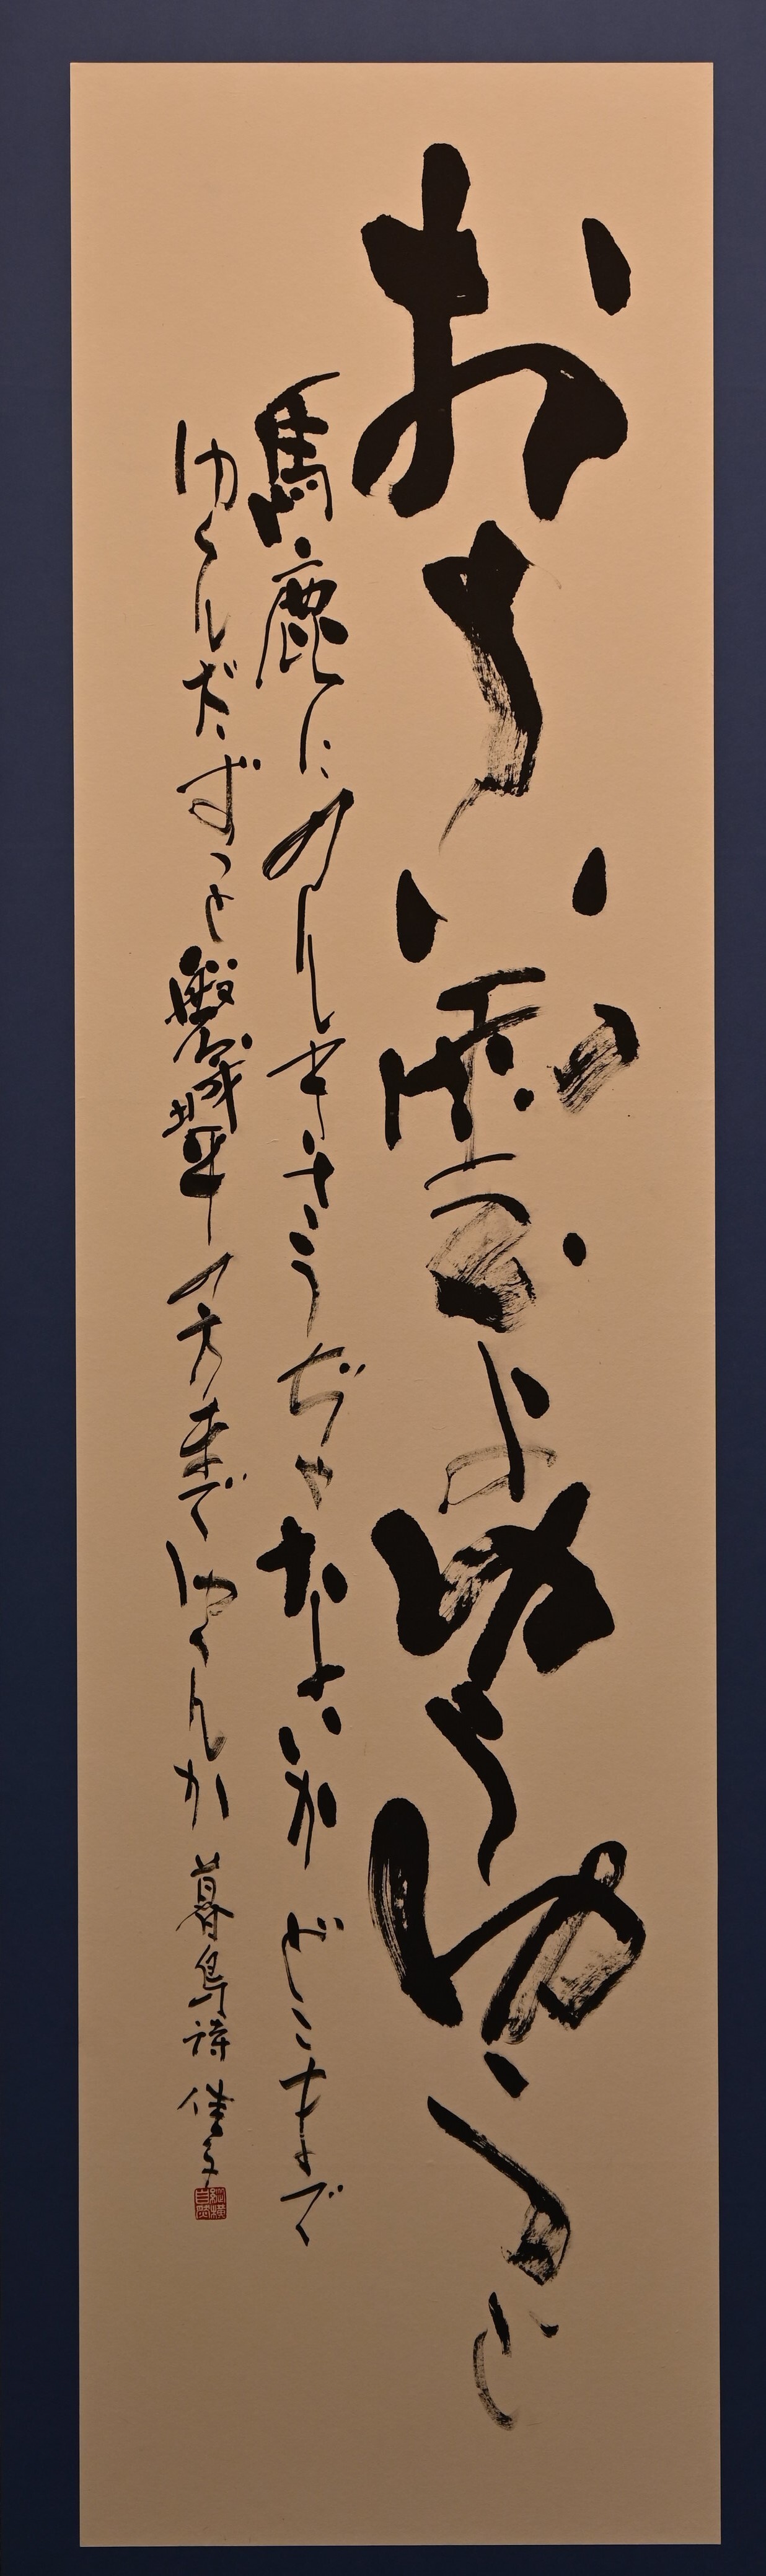 おうい雲よゆうゆうと
馬鹿にのんきさうぢやないかどこまで
ゆくんだずつと磐城平の方までゆくんか 暮鳥詩 佳